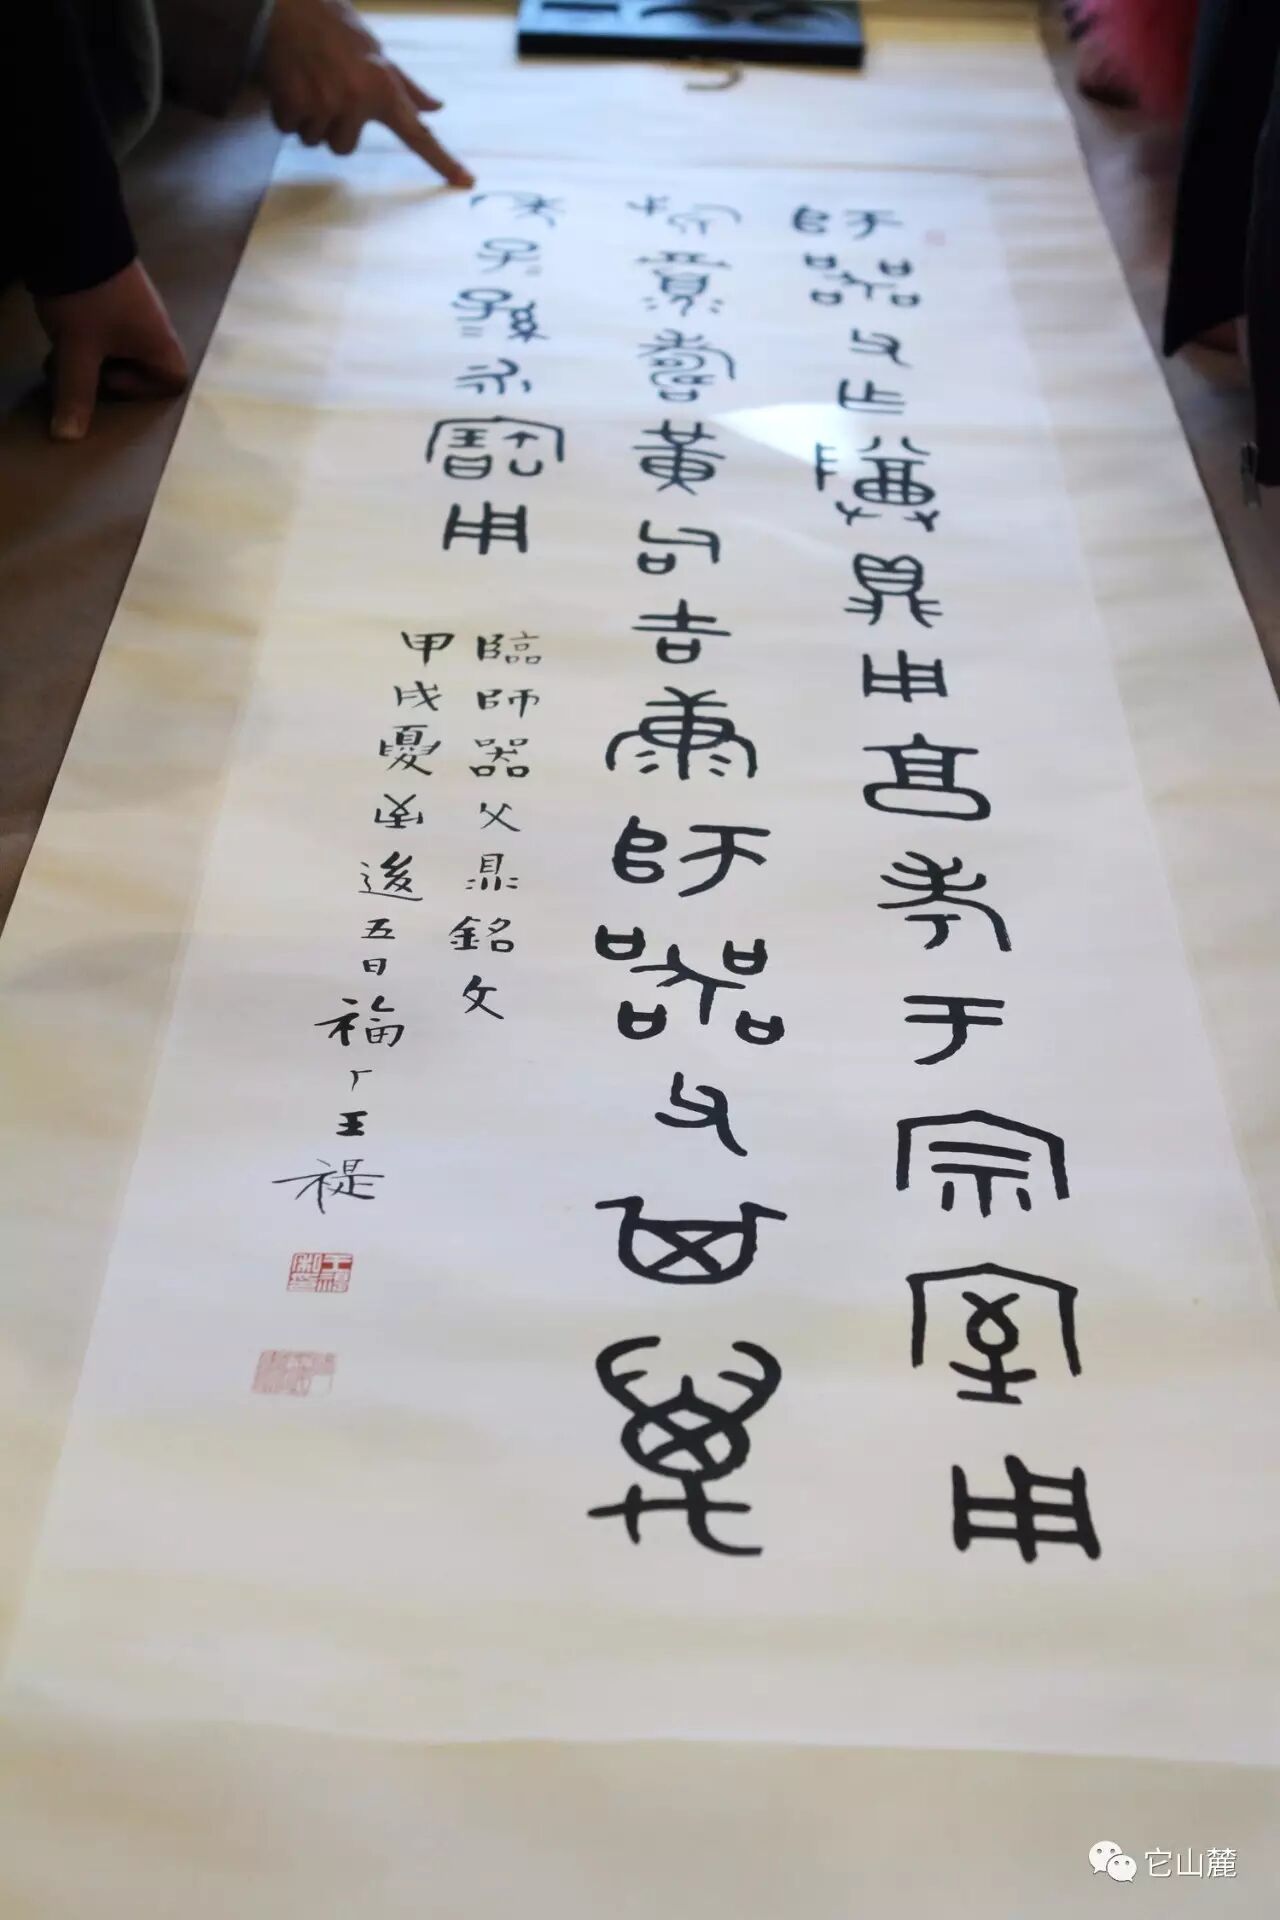 師器父乍尊鼎用享考于宗室用
祈眉壽黃耇吉康師器父其萬
年子〻孫〻永寶用
臨師器父鼎銘文
甲戌夏至後五日福厂王禔
王禔私印
它山麓